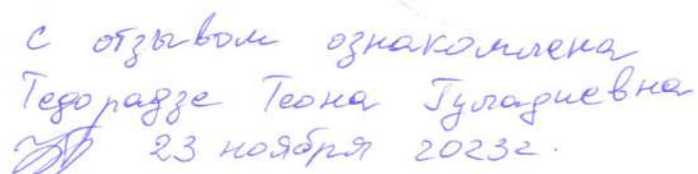 с отзывом ознакомлена
Тедорадзе Теона Гуладиевна
23 ноября 2023г.